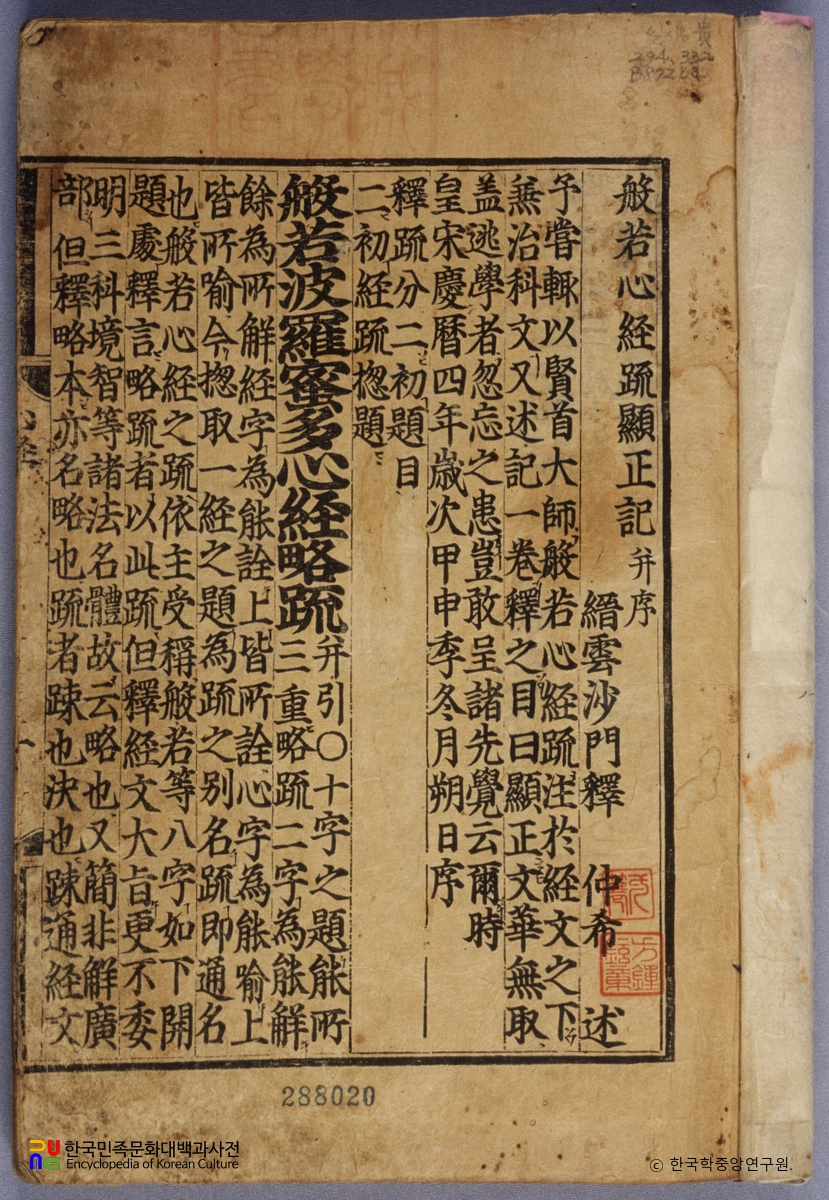 貴
294.332
般若心経䟽顯正記 并序
縉雲沙門釋 仲希 述
予甞輙以賢首大師般若心経䟽注於経文之下
兼治科文又述記一巻釋之目曰顯正文華無取
盖逃學者忽忘之患豈敢呈諸先覺云爾時
皇宋慶暦四年歳次甲申季冬月朔日序
釋䟽分二初題目
二初経䟽揔題
般若波羅蜜多心経略䟽
并引○十字之題能所
三重略䟽二字為能解
餘為所解経字為能詮上皆所詮心字為能喻上
皆所喻今揔取一経之題為䟽之别名䟽即通名
也般若心経之䟽依主受稱般若等八字如下開
題處釋言略䟽者以此䟽但釋経文大旨更不委
明三科境智等諸法名體故云略也又簡非解廣
部但釋略本亦名略也䟽者踈也決也踈通経文
288020
한국민족문화대백과사전
Encyclopedia of Korean Culture
© 한국학중앙연구원.